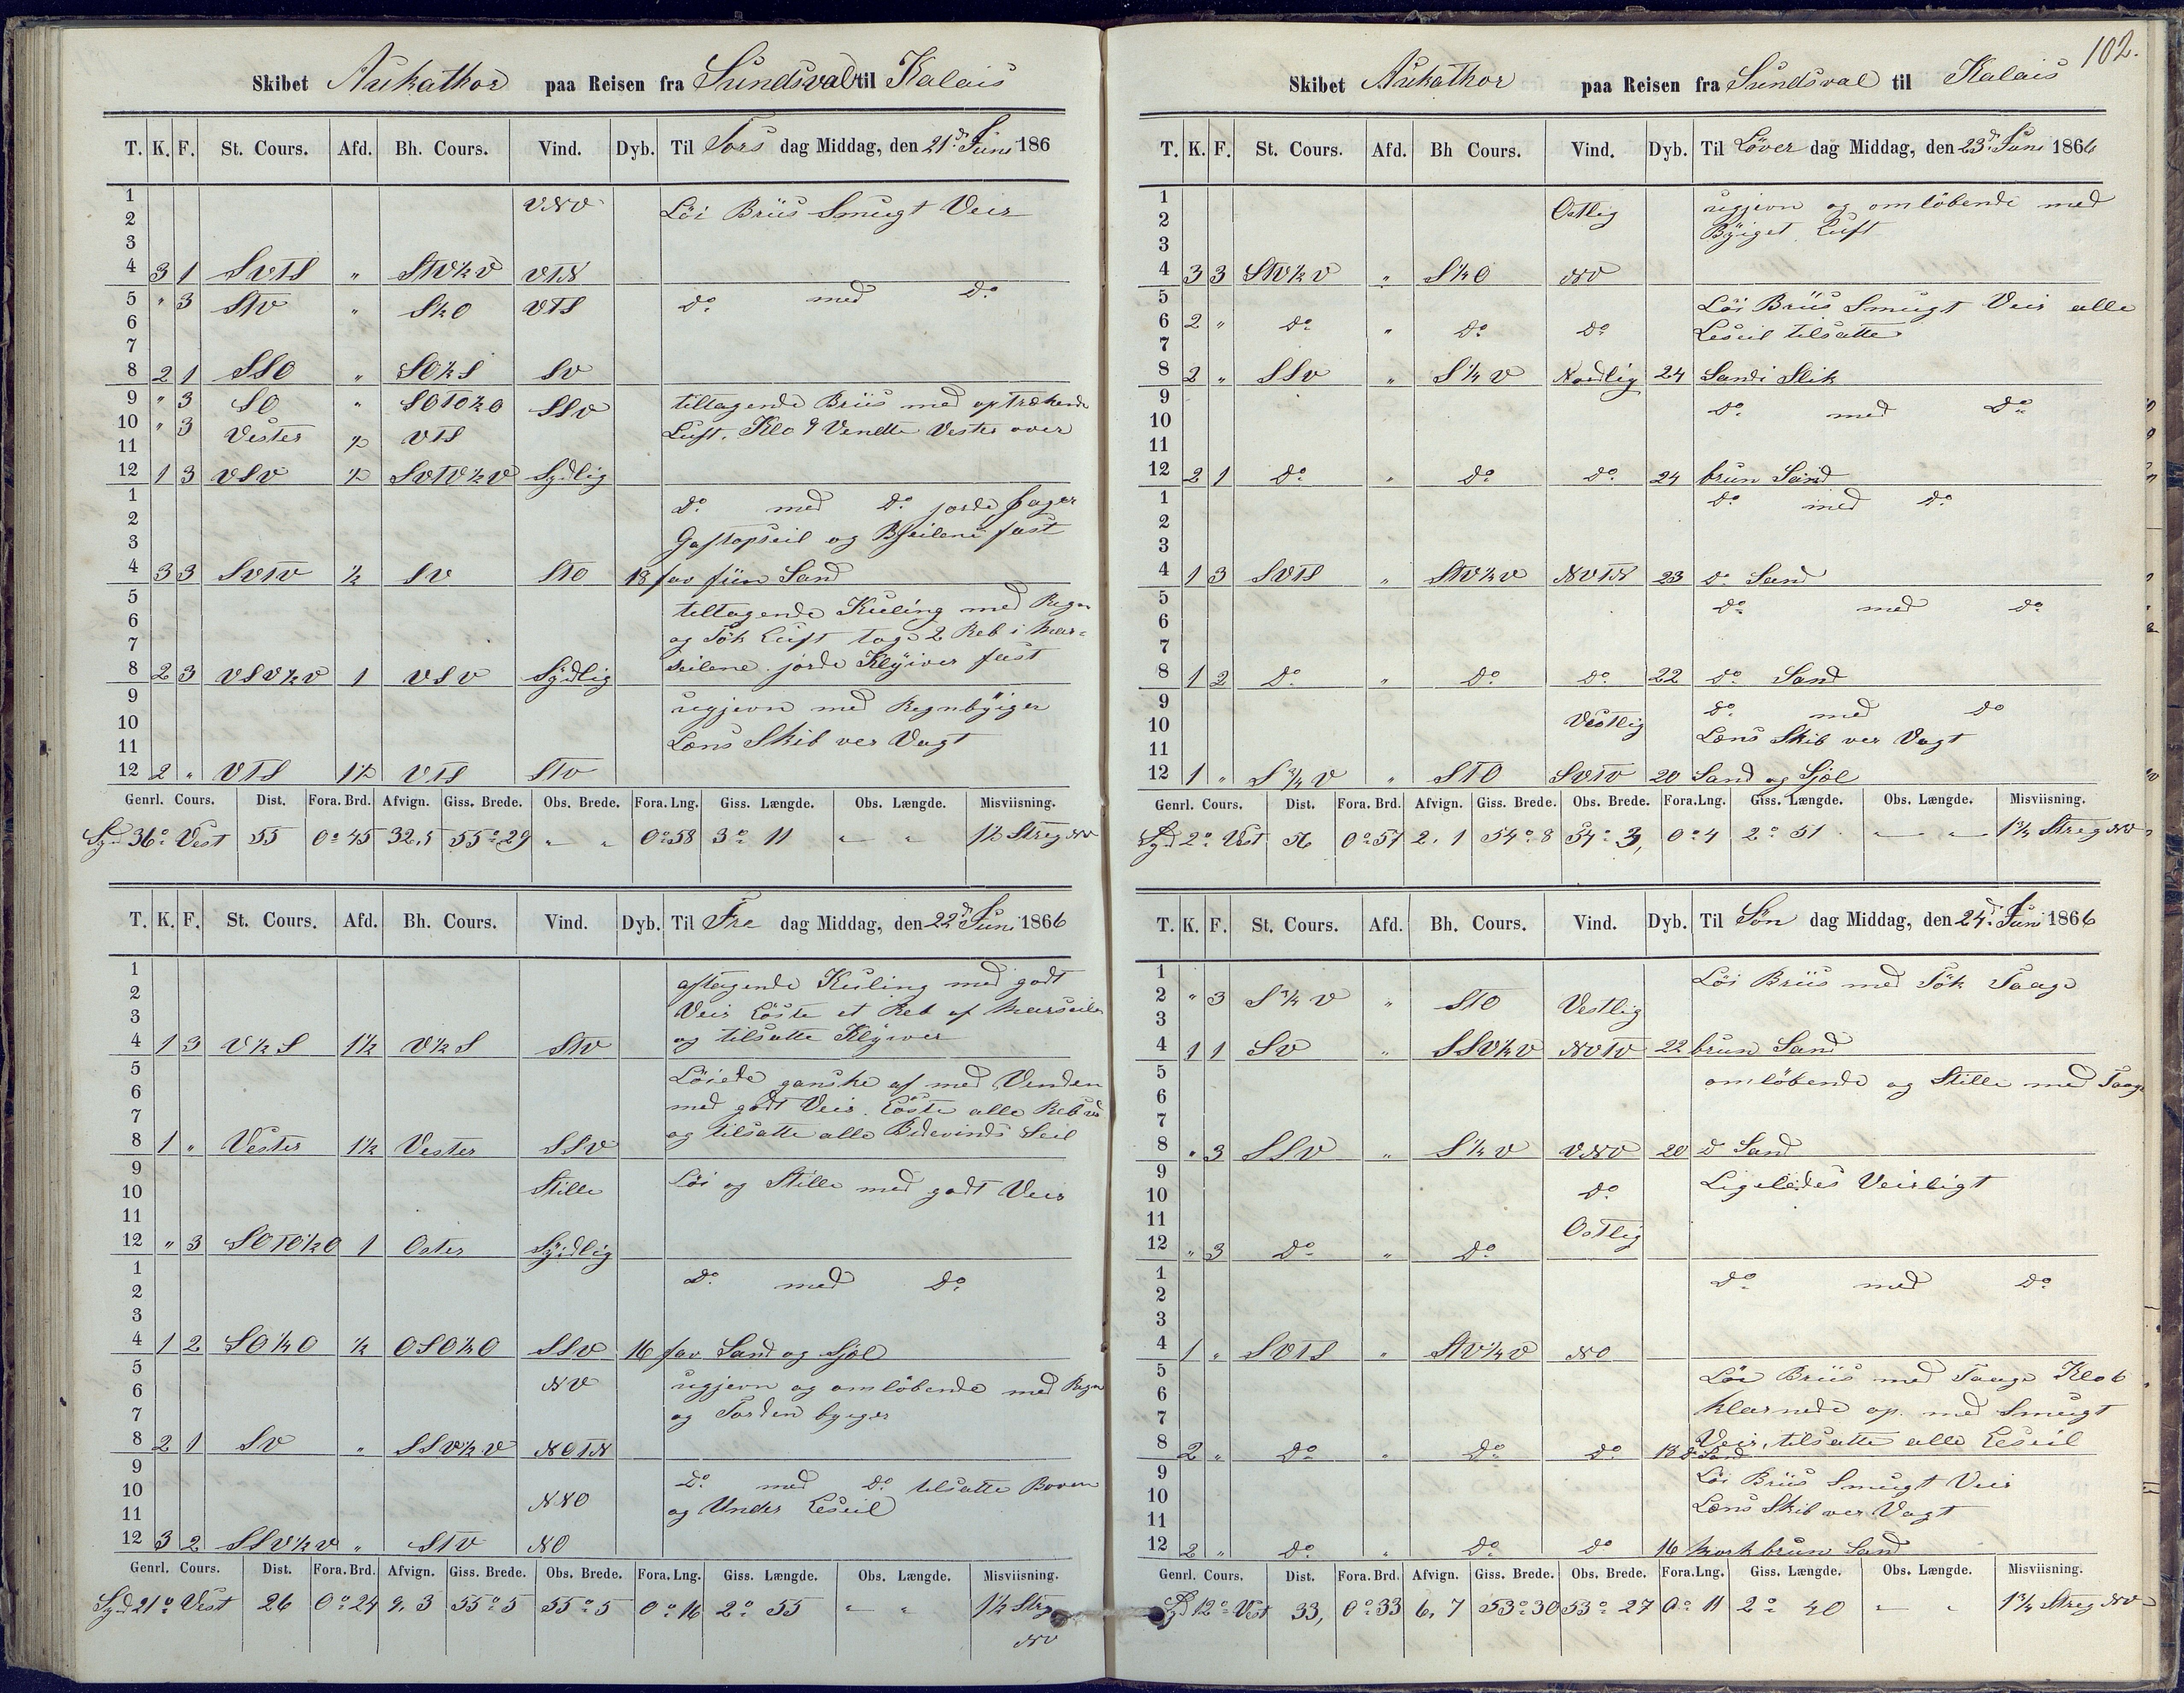 Skibet Aukathor paa Reisen fra Sundsval til Kalais
T. K. F. St. Cours. Afd. Bh. Cours. Vind. Dyb. Til Tors dag Middag, den 21de Juni 186
1 VNV Löi Briis Smugt Veir
2
3
4 3 1 SVTS " STV½V VTN
5 " 3 STV " S½O VTS Do med Do
6
7
8 2 1 SSO " SO½S SV
9 " 3 SO " SOTO½O SSV tiltagende Briis med optrækende
10 " 3 Vester ½ VTS Luft. Klo 9 Vendte Vester over
11
12 1 3 VSV ½ SVTV½V Sydlig
1 Do med Do jorde Bager
2 Gaftopseil og Bseilene fast
3
4 3 3 SVTV ½ SV STO 18 fav fiin Sand
5 tiltagende Kuling med Regn
6 og Tök Luft tog 2 Reb i Mar-
7 seilene. jorde Klyiver fast
8 2 3 VSV½V 1 VSV Sydlig
9 ugjevn med Regnbyiger
10 Lens Skib ver Vagt
11
12 2 " VTS 1½ VTS STV
Genrl. Cours. Dist. Fora. Brd. Afvign. Giss. Brede. Obs. Brede. Fora. Lng. Giss. Længde. Obs. Længde. Misviisning.
Syd 36° Vest 55 0° 45 32,5 55° 29 " " 0° 58 3° 11 " " 1½ Streg NV
T. K. F. St. Cours. Afd. Bh. Cours. Vind. Dyb. Til Fre dag Middag, den 22de Juni 1866
1 aftagende Kuling med godt
2 Veir Löste et Reb af Marseilen
3 og tilsatte Klyiver
4 1 3 V½S 1½ V½S STV
5 Löiede ganske af med Venden
6 med godt Veir. Löste alle Reb
7 og tilsatte alle Bidevinds Seil
8 1 " Vester 1½ Vester SSV
9 Stille Löi og Stille med godt Veir
10
11
12 " 3 SOTO½O 1 Oster Syidlig
1 Do med Do
2
3
4 1 2 SO¼O ½ OSO½O SSV 16 fav Sand og Sjöl
5 NV ugjevn og omlöbende med Regn
6 og Torden byger
7
8 2 1 SV " SSV½V NOTN
9 Do med Do tilsatte Boven
10 NNO og Under Leseil
11
12 3 2 SSV½V " STV NO
Genrl. Cours. Dist. Fora. Brd. Afvign. Giss. Brede. Obs. Brede. Fora. Lng. Giss. Længde. Obs. Længde. Misviisning.
Syd 21° Vest 26 0° 24 9,3 55° 5 55° 5 0° 16 2° 55 " " 1½ Streg
NV
102.
Skibet Aukathor paa Reisen fra Sundsval til Kalais
T. K. F. St. Cours. Afd. Bh Cours. Vind. Dyb. Til Löver dag Middag, den 23de Juni 1866
1 Ostlig ugjevn og omlöbende med
2 Byiget Luft
3
4 3 3 STV½V " S½O NV
5 Löi Briis Smugt Veir alle
6 2 " Do " Do Do Leseil tilsatte
7
8 2 " SSV " S¼V Nordlig 24 Sand i Slik
9 Do med Do
10
11
12 2 1 Do " Do Do 24 brun Sand
1 Do med Do
2
3
4 1 3 SVTS " STV½V NVTN 23 Do Sand
5 Do med Do
6
7
8 1 2 Do " Do Do 22 Do Sand
9 Vestlig Do med Do
10 Lens Skib ver Vagt
11
12 1 " S¾V " STO SVTV 20 Sand og Sjöl
Genrl. Cours. Dist. Fora. Brd. Afvign. Giss. Brede. Obs. Brede. Fora. Lng. Giss. Længde. Obs. Længde. Misviisning.
Syd 2° Vest 56 0° 57 2,1 54° 8 54° 3, 0° 4 2° 51 " " 1¾ Streg NV
T. K. F. St. Cours. Afd. Bh. Cours. Vind. Dyb. Til Sön dag Middag, den 24de Juni 1866
1 Löi Briis med Tök Taage
2 " 3 S¾V " STO Vestlig
3
4 1 1 SV " SSV½V NVTV 22 brun Sand
5 omlöbende og Stille med Taage
6
7
8 " 3 SSV " S¼V VNV 20 Do Sand
9 Do Ligeledes Veirligt
10
11 Ostlig
12 " 3 Do " Do
1 Do med Do
2
3
4 1 " SVTS " STV¼V NO
5 Löi Briis med Taage Klo 6
6 klarnede op. med Smugt
7 Veir, tilsatte alle Leseil
8 2 " Do " Do Do 18 Do Sand
9 Löi Briis Smugt Veir
10 Lens Skib ver Vagt
11
12 2 " Do " Do Do 16 Mork brun Sand
Genrl. Cours. Dist. Fora. Brd. Afvign. Giss. Brede. Obs. Brede. Fora. Lng. Giss. Længde. Obs. Længde. Misviisning.
Syd 12° Vest 33, 0° 33 6,7 53° 30 53° 27 0° 11 2° 40 " " 1¾ Streg NV